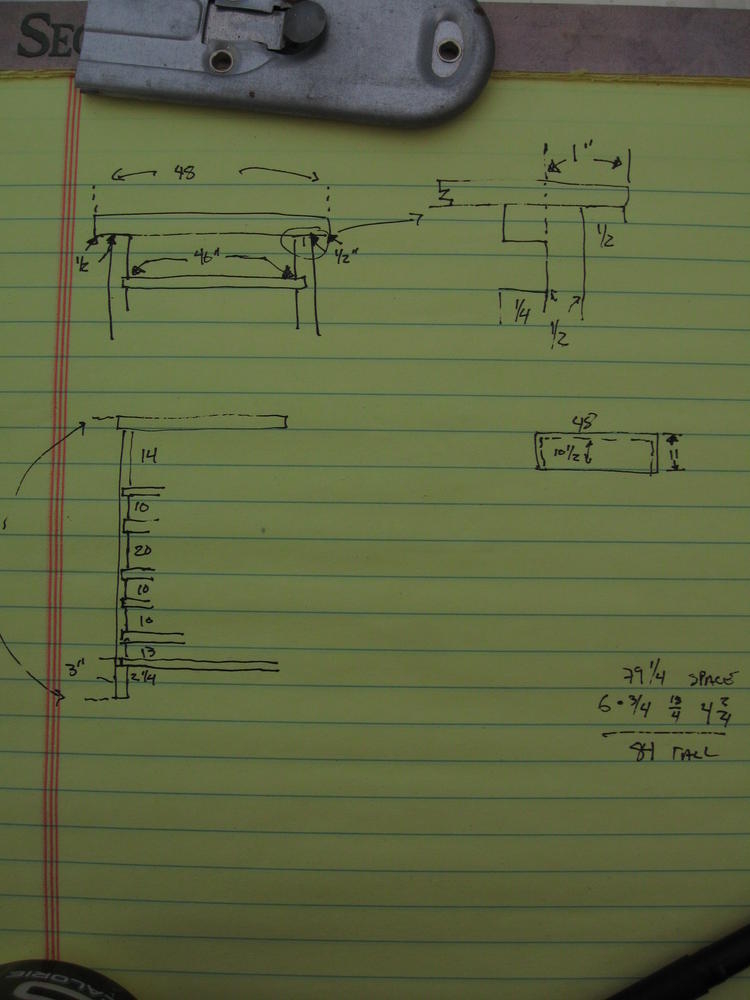 48
1"
1/2
46"
1/2"
1/2
1/4
1/2
48
10 1/2
11
14
10
20
10
10
13
3"
2 1/4
79 1/4 SPACE
6 · 3/4 18/4 4 2/4
84 TALL
CALORIE